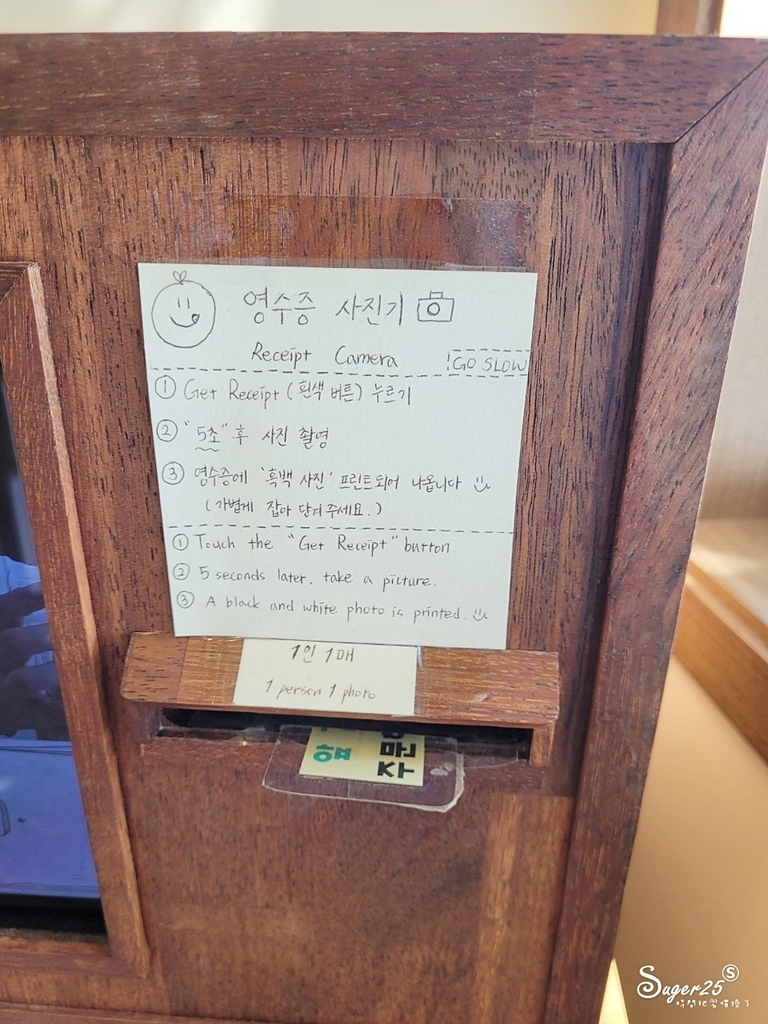 영수증 사진기
Receipt Camera
GO SLOW
① Get Receipt (흰색 버튼) 누르기
② "5초" 후 사진 촬영
③ 영수증에 '흑백 사진' 프린트되어 나옵니다
(가볍게 잡아 당겨 주세요.)
① Touch the "Get Receipt" button
② 5 seconds later, take a picture.
③ A black and white photo is printed.
1인 1매
1 person 1 photo
주문
Suger25